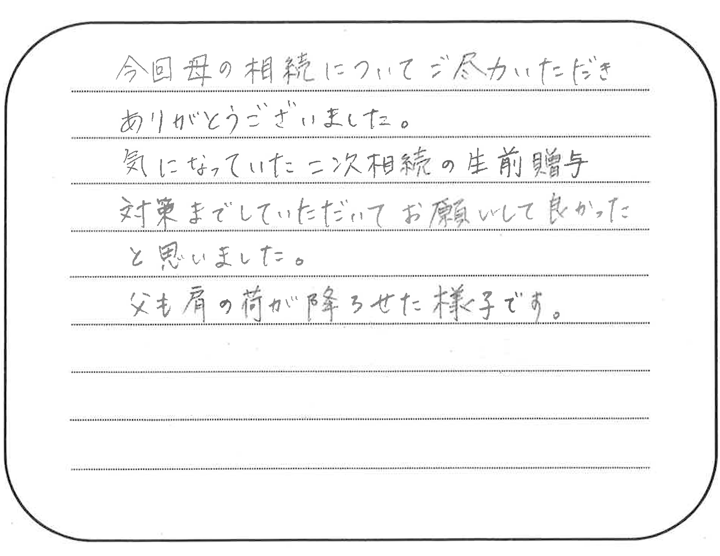 今回母の相続についてご尽力いただき
ありがとうございました。
気になっていた二次相続の生前贈与
対策までしていただいてお願いして良かった
と思いました。
父も肩の荷が降ろせた様子です。